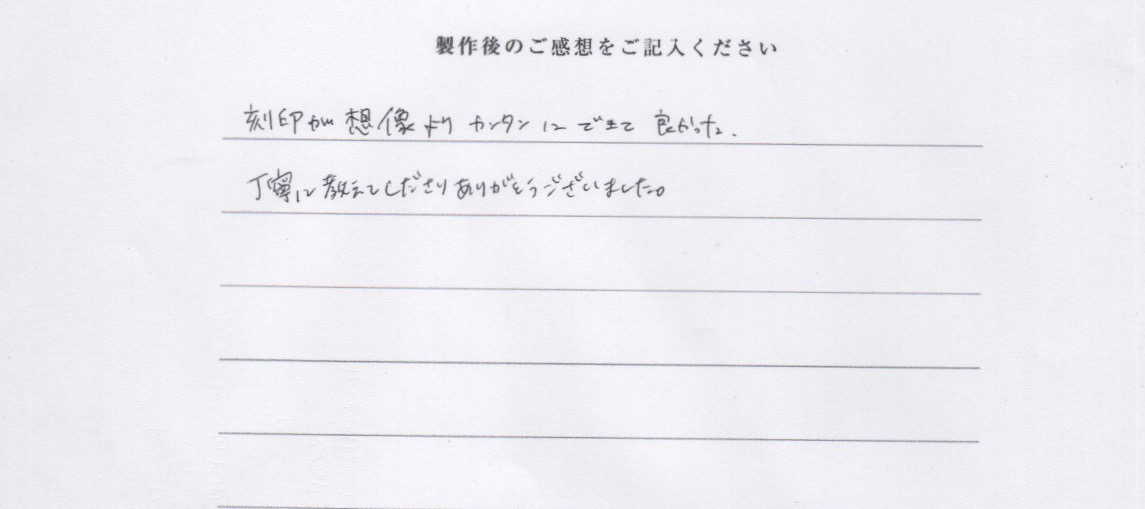 製作後のご感想をご記入ください
刻印が想像よりカンタンにできて良かった.
丁寧に教えてくださりありがとうございました。